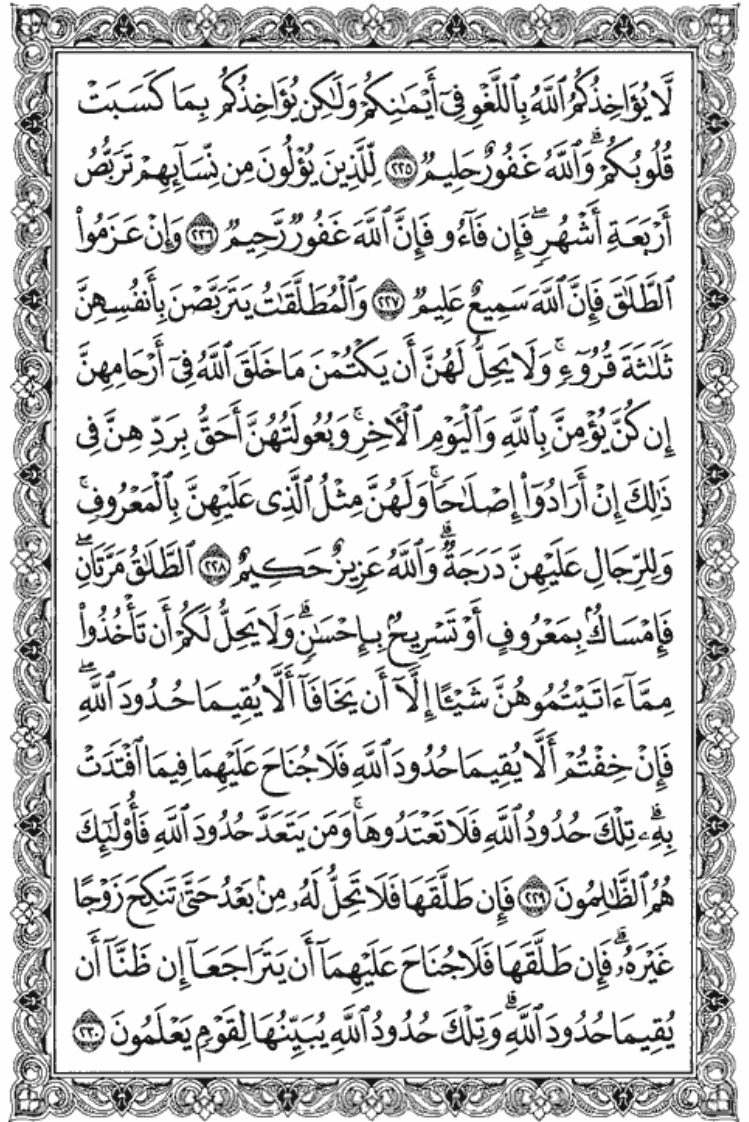 لَّا يُؤَاخِذُكُمُ ٱللَّهُ بِٱللَّغْوِ فِىٓ أَيْمَـٰنِكُمْ وَلَـٰكِن يُؤَاخِذُكُم بِمَا كَسَبَتْ
قُلُوبُكُمْ ۗ وَٱللَّهُ غَفُورٌ حَلِيمٌ ﴿٢٢٥﴾ لِّلَّذِينَ يُؤْلُونَ مِن نِّسَآئِهِمْ تَرَبُّصُ
أَرْبَعَةِ أَشْهُرٍ ۖ فَإِن فَآءُو فَإِنَّ ٱللَّهَ غَفُورٌ رَّحِيمٌ ﴿٢٢٦﴾ وَإِنْ عَزَمُوا۟
ٱلطَّلَـٰقَ فَإِنَّ ٱللَّهَ سَمِيعٌ عَلِيمٌ ﴿٢٢٧﴾ وَٱلْمُطَلَّقَـٰتُ يَتَرَبَّصْنَ بِأَنفُسِهِنَّ
ثَلَـٰثَةَ قُرُوٓءٍ ۚ وَلَا يَحِلُّ لَهُنَّ أَن يَكْتُمْنَ مَا خَلَقَ ٱللَّهُ فِىٓ أَرْحَامِهِنَّ
إِن كُنَّ يُؤْمِنَّ بِٱللَّهِ وَٱلْيَوْمِ ٱلْـَٔاخِرِ ۚ وَبُعُولَتُهُنَّ أَحَقُّ بِرَدِّهِنَّ فِى
ذَٰلِكَ إِنْ أَرَادُوٓا۟ إِصْلَـٰحًا ۚ وَلَهُنَّ مِثْلُ ٱلَّذِى عَلَيْهِنَّ بِٱلْمَعْرُوفِ ۚ
وَلِلرِّجَالِ عَلَيْهِنَّ دَرَجَةٌ ۗ وَٱللَّهُ عَزِيزٌ حَكِيمٌ ﴿٢٢٨﴾ ٱلطَّلَـٰقُ مَرَّتَانِ ۖ
فَإِمْسَاكٌۢ بِمَعْرُوفٍ أَوْ تَسْرِيحٌۢ بِإِحْسَـٰنٍ ۗ وَلَا يَحِلُّ لَكُمْ أَن تَأْخُذُوا۟
مِمَّآ ءَاتَيْتُمُوهُنَّ شَيْـًٔا إِلَّآ أَن يَخَافَآ أَلَّا يُقِيمَا حُدُودَ ٱللَّهِ ۖ
فَإِنْ خِفْتُمْ أَلَّا يُقِيمَا حُدُودَ ٱللَّهِ فَلَا جُنَاحَ عَلَيْهِمَا فِيمَا ٱفْتَدَتْ
بِهِۦ ۗ تِلْكَ حُدُودُ ٱللَّهِ فَلَا تَعْتَدُوهَا ۚ وَمَن يَتَعَدَّ حُدُودَ ٱللَّهِ فَأُو۟لَـٰٓئِكَ
هُمُ ٱلظَّـٰلِمُونَ ﴿٢٢٩﴾ فَإِن طَلَّقَهَا فَلَا تَحِلُّ لَهُۥ مِنۢ بَعْدُ حَتَّىٰ تَنكِحَ زَوْجًا
غَيْرَهُۥ ۗ فَإِن طَلَّقَهَا فَلَا جُنَاحَ عَلَيْهِمَآ أَن يَتَرَاجَعَآ إِن ظَنَّآ أَن
يُقِيمَا حُدُودَ ٱللَّهِ ۗ وَتِلْكَ حُدُودُ ٱللَّهِ يُبَيِّنُهَا لِقَوْمٍ يَعْلَمُونَ ﴿٢٣٠﴾